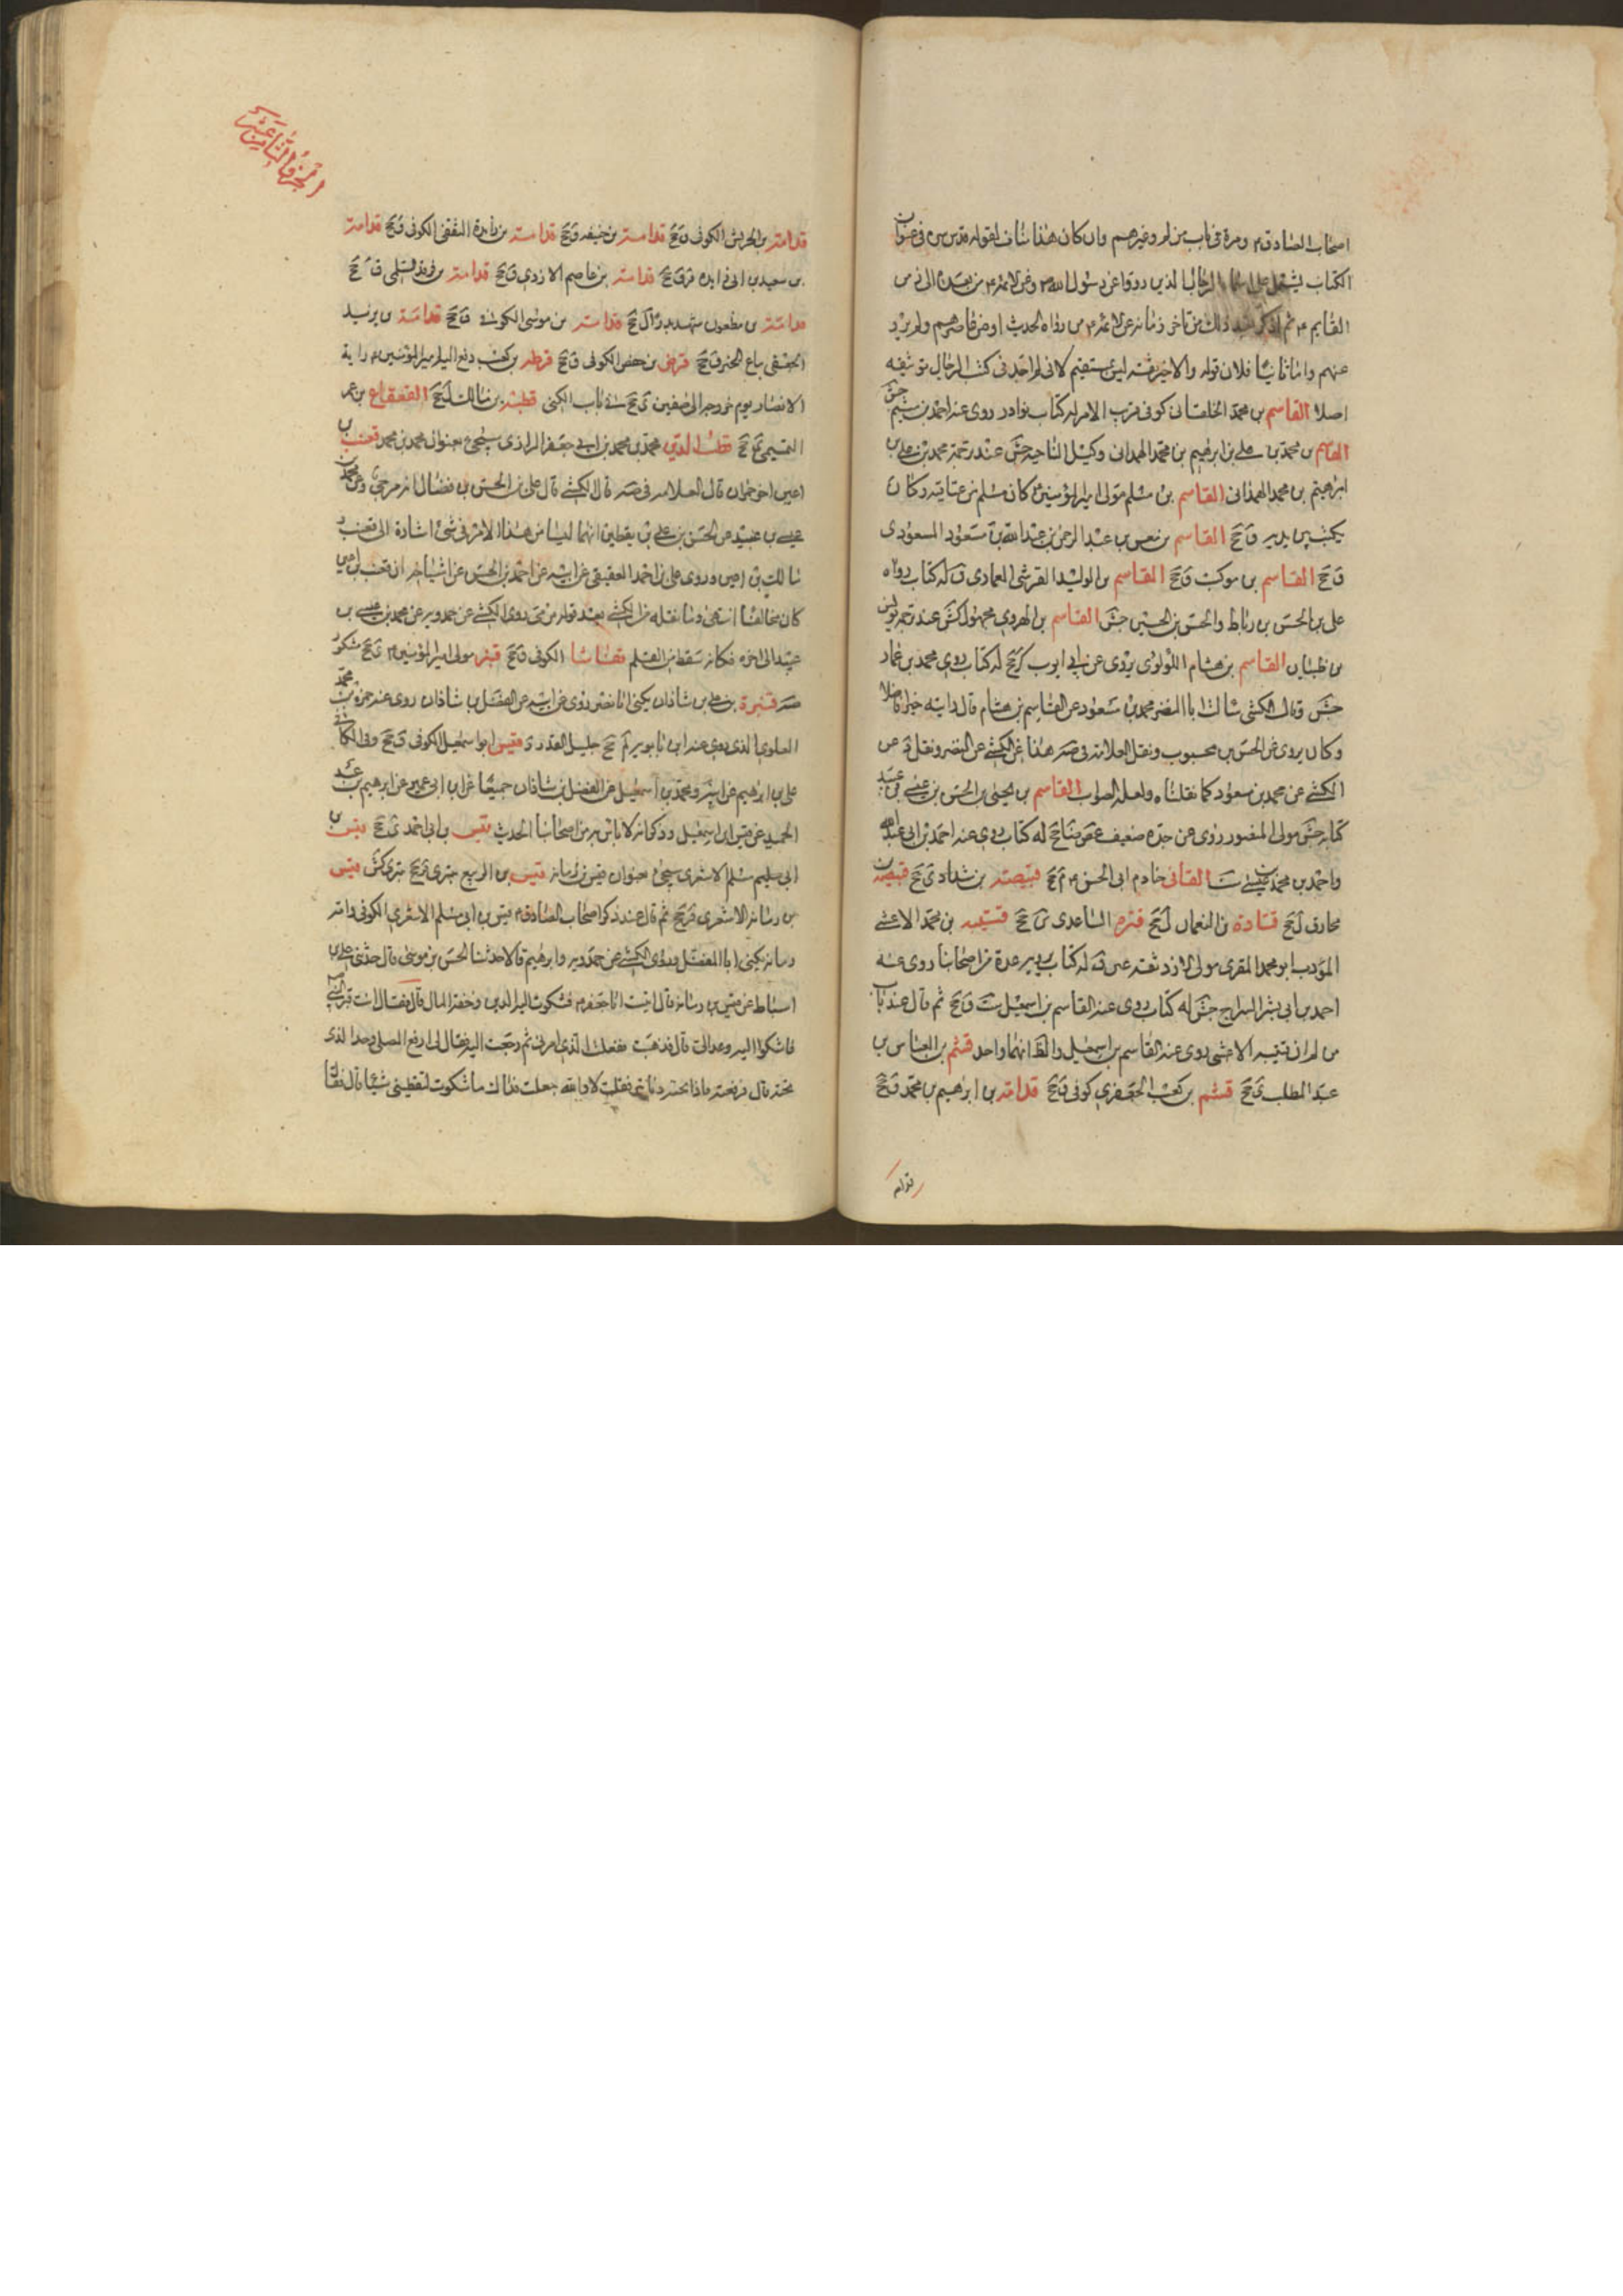 اصحاب الصادق ۴ ومرة في باب من لم وغيرهم وان كان هذا ينافي لقوله قدس سره في عنوان
الكتاب يشتمل على اسماء الرجال الذين رووا عن رسول الله ص وعن الائمة ۴ من بعده الى زمن
القايم ۴ ثم اذكر بعد ذلك من تاخر زمانه عن الائمة ۴ من رواة الحديث او من عاصرهم ولم يرو
عنهم واما ثانيا فلان قوله والاخير ثقة ليس بمستقيم لاني لم اجد في كتب الرجال توثيقه
اصلا القاسم بن محمد الخلقاني كوفي قريب الامر له كتاب نوادر روى عنه احمد بن ميثم جش
القاسم بن محمد بن علي بن ابرهيم بن محمد الهمداني وكيل الناحية جش عند ترجمة محمد بن علي بن
ابرهيم بن محمد الهمداني القاسم بن مسلم مولى امير المؤمنين ۴ كان مسلم من عتاقته وكان
يكتب بين يديه ق جخ القاسم بن معن بن عبد الرحمن بن عبد الله بن مسعود المسعودي
ق جخ القاسم بن موكب ق جخ القاسم بن الوليد القرشي العمادي ق له كتاب رواه
علي بن الحسن بن رباط والحسن بن الحسين جش القاسم بن الهروي مجهول كش عند ترجمة يونس
بن ظبيان القاسم بن هشام اللؤلؤي يروي عن ابي ايوب كر جخ له كتاب روى محمد بن عمار
جش وقال الكشي سالت ابا النضر محمد بن مسعود عن القاسم بن هشام قال رايته خيرا فاضلا
وكان يروي عن الحسن بن محبوب ونقل العلامة في صه هذا عن الكشي عن النضر ونقل د عن
الكشي عن محمد بن مسعود كما نقلناه ولعله الصواب القاسم بن يحيى بن الحسن بن
كتابه جش مولى المنصور روى عن جده ضعيف غض ضا جخ له كتاب روى عنه احمد بن ابي عبد الله
واحمد بن محمد بن عيسى ست القاني خادم ابي الحسن ۴ م جخ قبيصة بن شداد ي جخ قبيصة بن
مخارق ل جخ قتادة بن النعمان ل جخ قترة الساعدي ي جخ قتيبة بن محمد الاعشى
المؤدب ابو محمد المقري مولى الازد ثقة عين ق له كتاب يرويه عدة من اصحابنا روى عنه
احمد بن ابي بشر السراج جش له كتاب روى عنه القاسم بن اسمعيل ست ق جخ ثم قال عند باب
من لم ان قتيبة الاعشى روى عنه القاسم بن اسمعيل والظ انهما واحد قثم بن العباس بن
عبد المطلب ي جخ قثم بن كعب الجعفري كوفي ق جخ قدامة بن ابرهيم بن محمد ق جخ
قدامة
الجزء الثامن عشر
قدامة بن الحريش الكوفي ق جخ قدامة بن خيفه ق جخ قدامة بن زايدة الثقفي الكوفي ق جخ قدامة
بن سعيد بن ابي زايده قر ق جخ قدامة بن عاصم الازدي ق جخ قدامة بن فرقد السلمي ق جخ
قدامة بن مظعون شهد بدرا ل جخ قدامة بن موسى الكوفي ق جخ قدامة بن يزيد
الجعفي بياع الخبز ق جخ قرض بن حفص الكوفي ق جخ قرظه بن كعب دفع اليه امير المؤمنين ۴ راية
الانصار يوم خروجه الى صفين ي جخ باب الكنى قطبة بن مالك ل جخ القعقاع بن عمر
التميمي ي جخ قطب الدين محمد بن محمد بن ابي جعفر الرازي سيجئ بعنوان محمد بن محمد قعنب بن
اعين اخو حمران قال العلامة في صه قال الكشي قال علي بن الحسن بن فضال انه مرجئ وعن محمد بن
عيسى بن عبيد عن الحسن بن علي بن يقطين انهما ليسا من هذا الامر في شئ اشارة الى قعنب و
مالك بن اعين وروى علي بن احمد العقيقي عن ابيه عن احمد بن الحسن عن اشياخه ان قعنب بن اعين
كان مخالفا انتهى وما نقله من الكشي بعد قوله مرجئ روى الكشي عن حمدويه عن محمد بن عيسى بن
عبيد الى اخره فكانه سقط من القلم الكوفي ق جخ قنبر مولى امير المؤمنين ۴ ي جخ مشكور
صه قنبرة بن علي بن شاذان يكنى ابا نصر روى عن ابيه عن الفضل بن شاذان روى عنه حمزة بن محمد
العلوي الذي روى عنه ابن بابويه لم جخ جليل القدر د قيس ابو اسمعيل الكوفي ق جخ وفي الكافي
علي بن ابرهيم عن ابيه ومحمد بن اسمعيل عن الفضل بن شاذان جميعا عن ابن ابي عمير عن ابرهيم بن عبد
الحميد عن قيس ابي اسمعيل وذكر انه لا باس به من اصحابنا الحديث قيس بن ابي احمد ق جخ قيس بن
ابي مسلم الاشعري سيجئ بعنوان قيس بن رمانة قيس بن الربيع بتري قر جخ بتري كش قيس
بن رمانة الاشعري قر جخ ثم قال عند ذكر اصحاب الصادق ۴ قيس بن ابي مسلم الاشعري الكوفي وامه
رمانة يكنى ابا المفضل وروى الكشي عن حمدويه وابرهيم قالا حدثنا الحسن بن موسى قال حدثني علي بن
اسباط عن قيس بن رمانة قال اتيت ابا جعفر ۴ فشكوت اليه الدين وخفة المال قال فقال ائت قبر النبي
فاشكوا اليه وعد الي قال فذهبت ففعلت الذي امرني ثم رجعت اليه فقال لي ارفع المصلى وخذ الذي
تحته قال فرفعته فاذا تحته دنانير فقلت لا والله جعلت فداك ما شكوت لتعطيني شيئا قال فقال